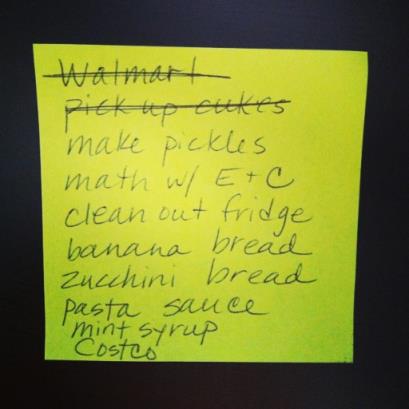 Walmart
pick up cukes
make pickles
math w/ E+C
clean out fridge
banana bread
zucchini bread
pasta sauce
mint syrup
Costco